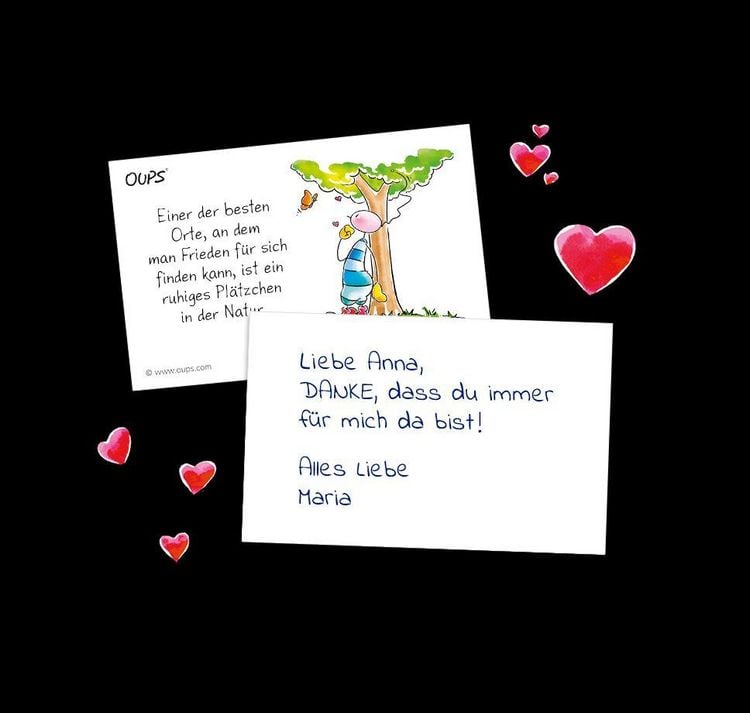 OUPS
Einer der besten
Orte, an dem
man Frieden für sich
finden kann, ist ein
ruhiges Plätzchen
in der Natur
© www.oups.com
Liebe Anna,
DANKE, dass du immer
für mich da bist!
Alles Liebe
Maria